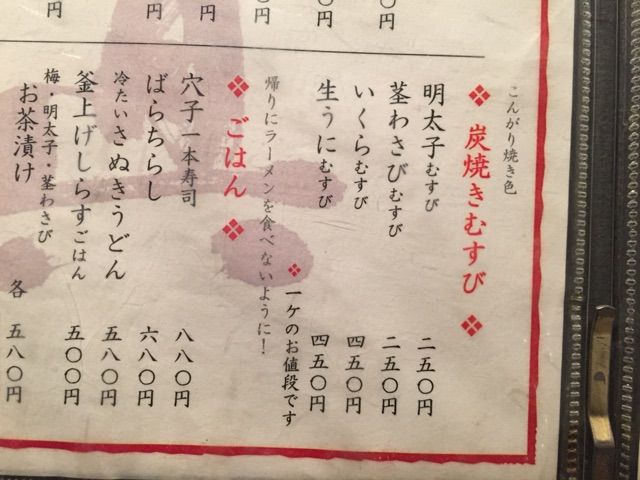 こんがり焼き色
炭焼きむすび
明太子むすび 二五〇円
茎わさびむすび 二五〇円
いくらむすび 四五〇円
生うにむすび 四五〇円
一ケのお値段です
帰りにラーメンを食べないように！
ごはん
穴子一本寿司 八八〇円
ばらちらし 六八〇円
冷たいさぬきうどん 五八〇円
釜上げしらすごはん 五〇〇円
梅・明太子・茎わさび
お茶漬け 各 五八〇円
〇円
〇円
円
円
円
円